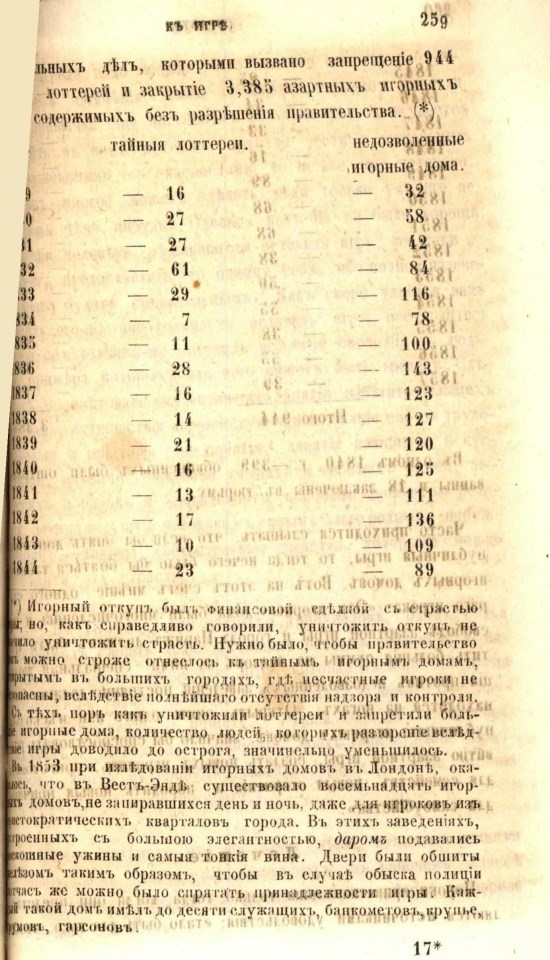 КЪ ИГРѢ. 259
льныхъ дѣлъ, которыми вызвано запрещеніе 944
лоттерей и закрытіе 3,385 азартныхъ игорныхъ
содержимыхъ безъ разрѣшенія правительства. (*)
тайныя лоттереи. недозволенные
игорные дома.
9 — 16 — 32
0 — 27 — 58
31 — 27 — 42
32 — 61 — 84
833 — 29 — 116
834 — 7 — 78
835 — 11 — 100
1836 — 28 — 143
1837 — 16 — 123
1838 — 14 — 127
1839 — 21 — 120
1840 — 16 — 125
1841 — 13 — 111
1842 — 17 — 136
1843 — 10 — 109
1844 — 23 — 89
*) Игорный откупъ былъ финансовой сдѣлкой съ страстью
но, какъ справедливо говорили, уничтожить откупъ не
уничтожить страсть. Нужно было, чтобы правительство
можно строже отнеслось къ тайнымъ игорнымъ домамъ,
крытымъ въ большихъ городахъ, гдѣ несчастные игроки не
опасны, вслѣдствіе полнѣйшаго отсутствія надзора и контроля.
Съ тѣхъ поръ какъ уничтожили лоттереи и запретили боль-
е игорные дома, количество людей, которыхъ разореніе вслѣд-
іе игры доводило до острога, значительно уменьшилось.
Въ 1853 при изслѣдованіи игорныхъ домовъ въ Лондонѣ, ока-
лось, что въ Вестъ-Эндѣ существовало восемьнадцать игор-
хъ домовъ, не запиравшихся день и ночь, даже для игроковъ изъ
стократическихъ кварталовъ города. Въ этихъ заведеніяхъ,
строенныхъ съ большою элегантностью, даромъ подавались
скошные ужины и самыя тонкія вина. Двери были обшиты
лѣзомъ такимъ образомъ, чтобы въ случаѣ обыска полиціи
часъ же можно было спрятать принадлежности игры. Каж-
й такой домъ имѣлъ до десяти служащихъ, банкометовъ, крупье,
румовъ, гарсоновъ.
17*